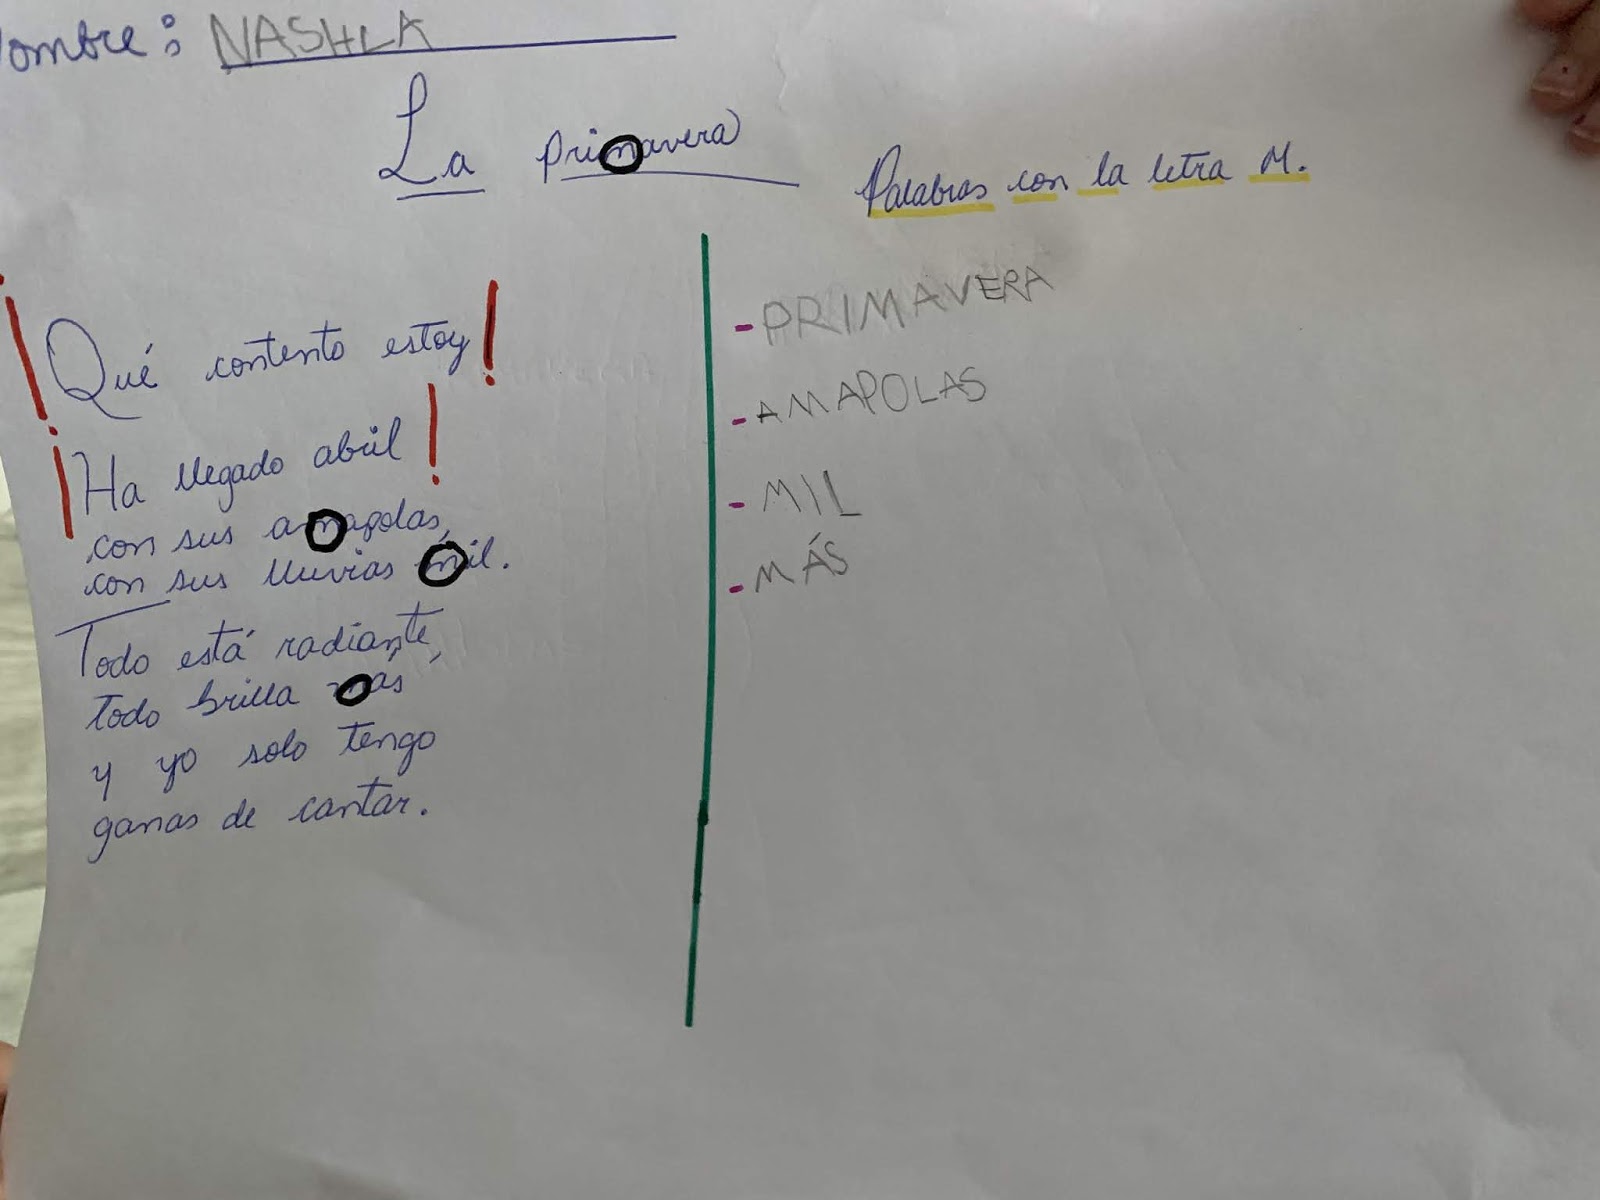 Nombre: NASHLA
La primavera
¡Qué contento estoy!
¡Ha llegado abril!
con sus amapolas,
con sus lluvias mil.
Todo está radiante,
todo brilla más
y yo solo tengo
ganas de cantar.
Palabras con la letra M.
- PRIMAVERA
- AMAPOLAS
- MIL
- MÁS